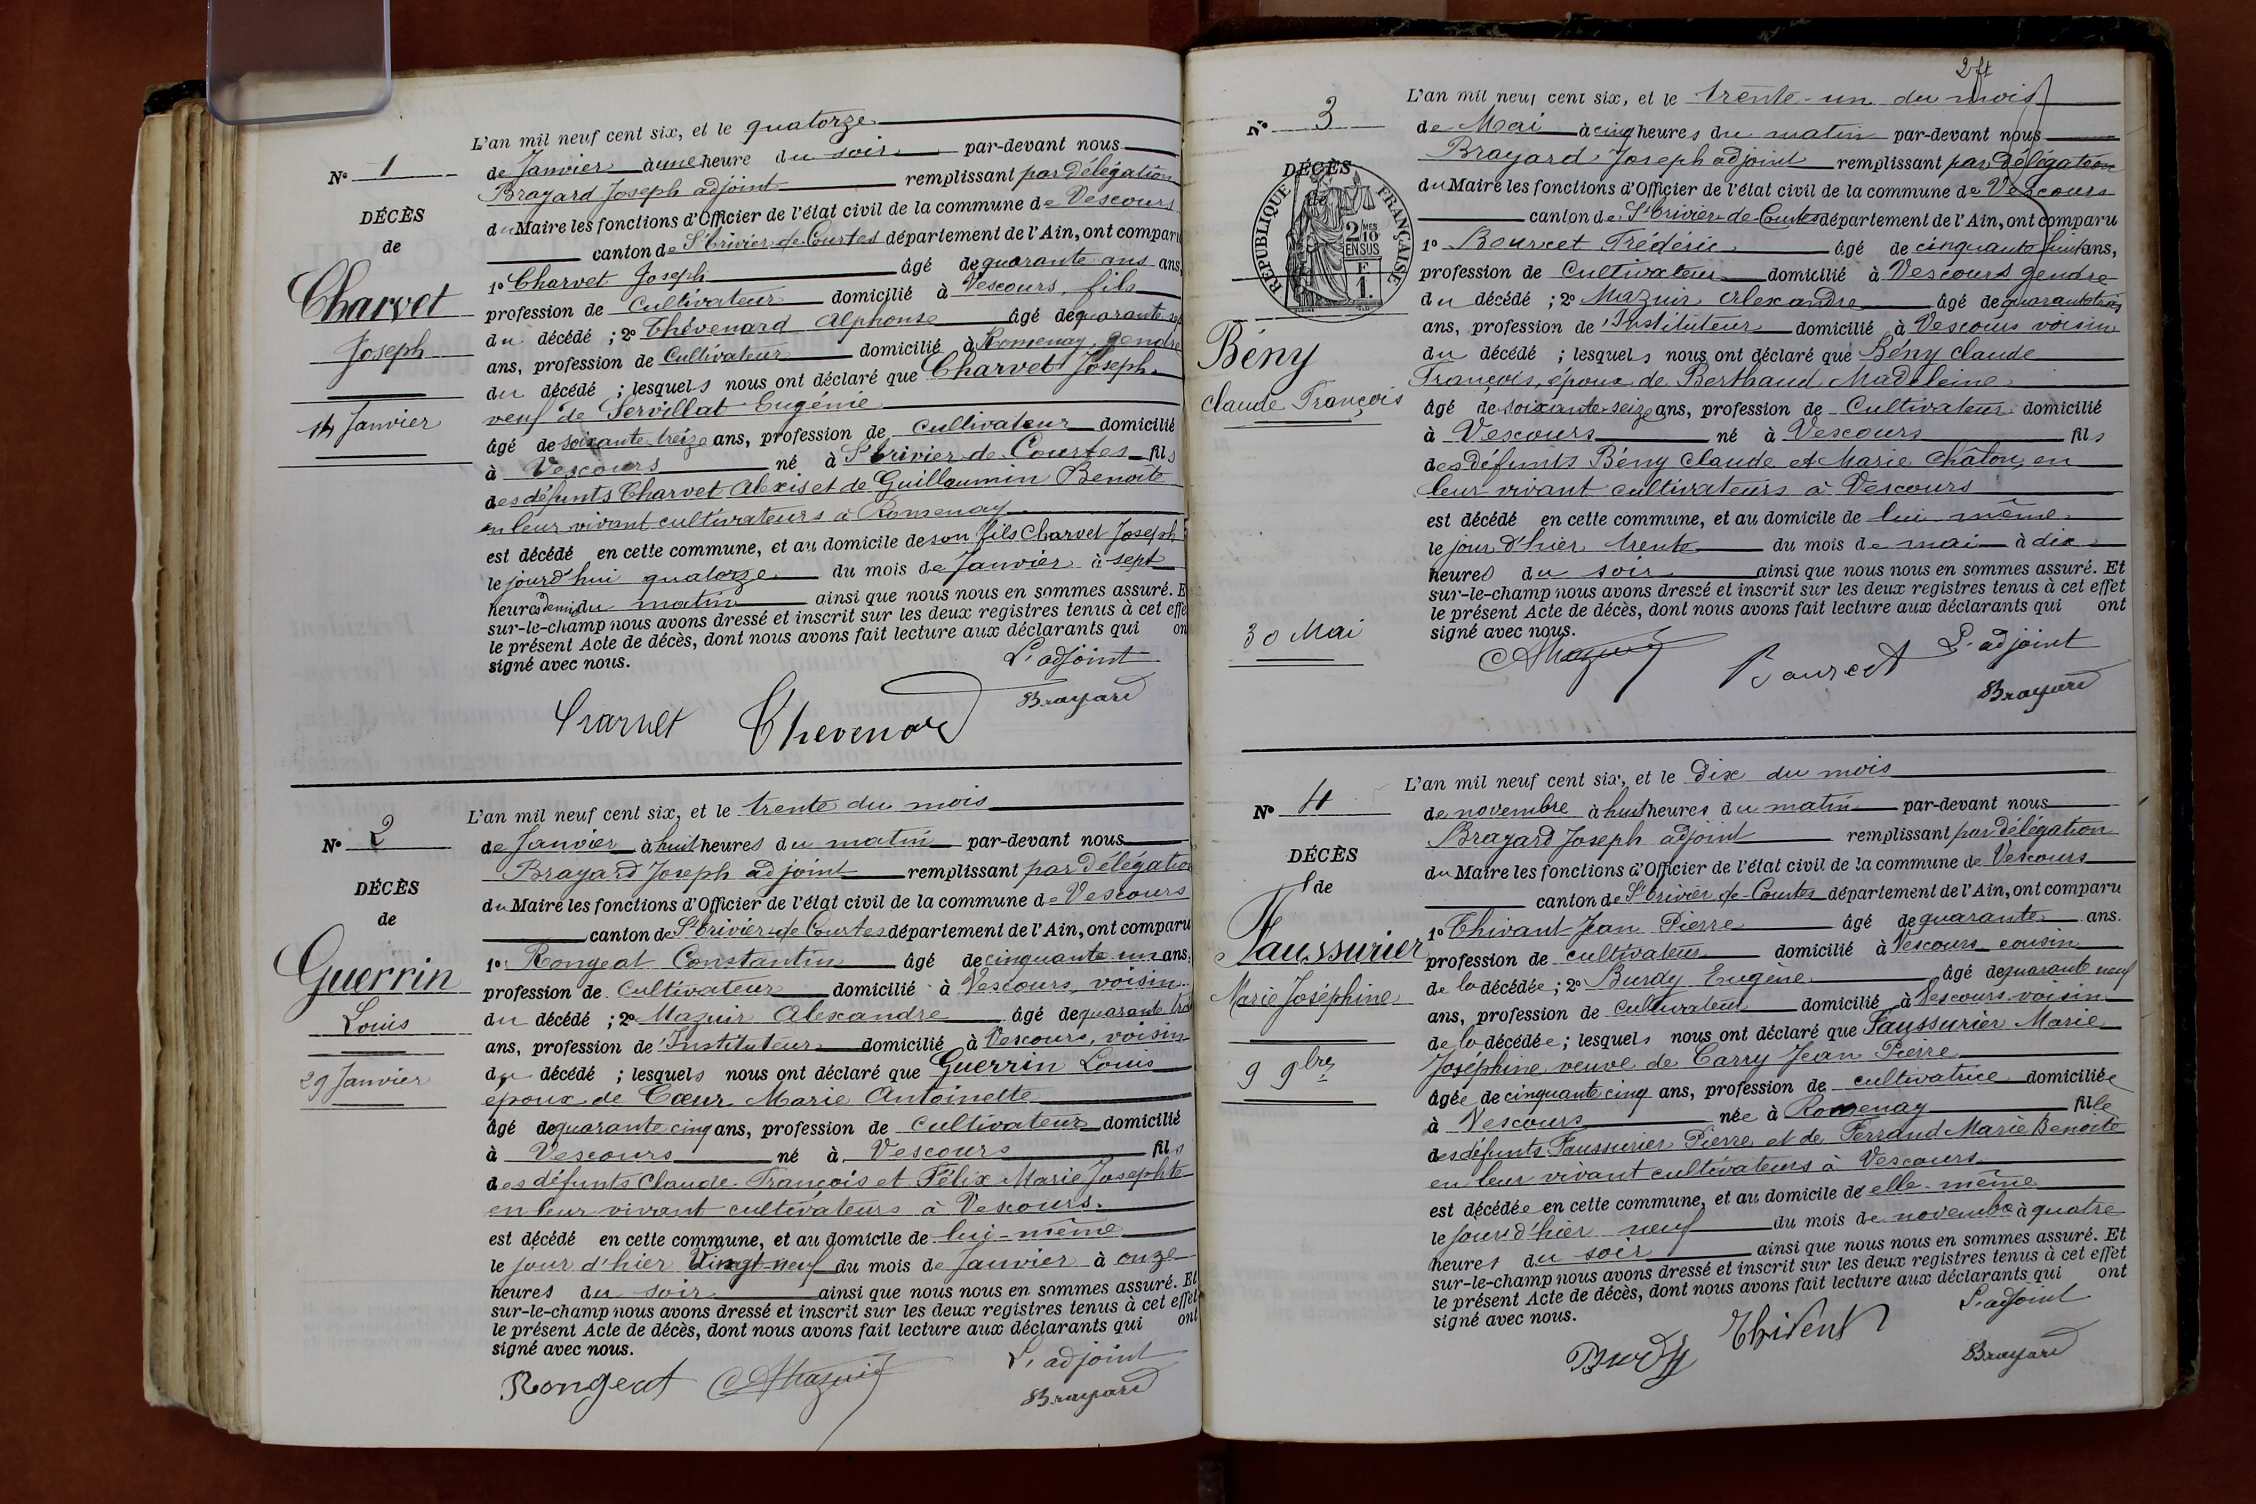 L'an mil neuf cent six, et le quatorze
N° 1
de Janvier à une heure du soir par-devant nous
Brayard Joseph adjoint remplissant par délégation
DÉCÈS
du Maire les fonctions d'Officier de l'état civil de la commune de Vescours
de
canton de St Trivier de Courtes département de l'Ain, ont comparu
1° Charvet Joseph âgé de quarante ans ans,
Charvet
profession de Cultivateur domicilié à Vescours, fils
Joseph
du décédé ; 2° Thévenard Alphonse âgé de quarante sept
ans, profession de Cultivateur domicilié à Romenay, gendre
du décédé ; lesquels nous ont déclaré que Charvet Joseph
14 Janvier
veuf de Servillat Eugénie
âgé de soixante treize ans, profession de cultivateur domicilié
à Vescours né à St Trivier de Courtes fils
des défunts Charvet Alexis et de Guillaumin Benoîte
en leur vivant cultivateurs à Romenay
est décédé en cette commune, et au domicile de son fils Charvet Joseph
le jourd'hui quatorze du mois de Janvier à sept
heures demie du matin ainsi que nous nous en sommes assuré. E
sur-le-champ nous avons dressé et inscrit sur les deux registres tenus à cet effe
le présent Acte de décès, dont nous avons fait lecture aux déclarants qui on
signé avec nous.
L'adjoint
Charvet Thevenard Brayard
L'an mil neuf cent six, et le trente du mois
N° 2
de Janvier à huit heures du matin par-devant nous
Brayard Joseph adjoint remplissant par délégation
DÉCÈS
du Maire les fonctions d'Officier de l'état civil de la commune de Vescours
de
canton de St Trivier de Courtes département de l'Ain, ont comparu
1° Rongeat Constantin âgé de cinquante un ans,
Guerrin
profession de Cultivateur domicilié à Vescours, voisin
Louis
du décédé ; 2° Mazuir Alexandre âgé de quarante trois
ans, profession de Instituteur domicilié à Vescours, voisin
29 Janvier
du décédé ; lesquels nous ont déclaré que Guerrin Louis
époux de Cœur Marie Antoinette
âgé de quarante cinq ans, profession de cultivateur domicilié
à Vescours né à Vescours fils
des défunts Claude François et Félix Marie Josephte
en leur vivant cultivateurs à Vescours.
est décédé en cette commune, et au domicile de lui-même
le jour d'hier Vingt-neuf du mois de Janvier à onze
heures du soir ainsi que nous nous en sommes assuré. Et
sur-le-champ nous avons dressé et inscrit sur les deux registres tenus à cet effet
le présent Acte de décès, dont nous avons fait lecture aux déclarants qui ont
signé avec nous.
L'adjoint
Rongeat AMazuir Brayard
2 ft
L'an mil neuf cent six, et le trente-un du mois
N° 3
de Mai à cinq heures du matin par-devant nous
Brayard Joseph adjoint remplissant par délégation
DÉCÈS
RÉPUBLIQUE FRANÇAISE
2 MES
/10
EN SUS
F
1.
du Maire les fonctions d'Officier de l'état civil de la commune de Vescours
canton de St Trivier de Courtes département de l'Ain, ont comparu
1° Bourcet Frédéric âgé de cinquante huit ans,
profession de Cultivateur domicilié à Vescours gendre
du décédé ; 2° Mazuir Alexandre âgé de quarante trois
ans, profession de Instituteur domicilié à Vescours voisin
Bény
du décédé ; lesquels nous ont déclaré que Bény Claude
François, époux de Berthaud Madeleine
Claude François
âgé de soixante-seize ans, profession de Cultivateur domicilié
à Vescours né à Vescours fils
des défunts Bény Claude et Marie Châton, en
leur vivant cultivateurs à Vescours
est décédé en cette commune, et au domicile de lui-même
le jour d'hier trente du mois de mai à dix
heures du soir ainsi que nous nous en sommes assuré. Et
sur-le-champ nous avons dressé et inscrit sur les deux registres tenus à cet effet
le présent Acte de décès, dont nous avons fait lecture aux déclarants qui ont
30 Mai
signé avec nous.
L'adjoint
AMazuir Bourcet Brayard
L'an mil neuf cent six, et le dix du mois
N° 4
de novembre à huit heures du matin par-devant nous
Brayard Joseph adjoint remplissant par délégation
DÉCÈS
du Maire les fonctions d'Officier de l'état civil de la commune de Vescours
de
canton de St Trivier de Courtes département de l'Ain, ont comparu
1° Thivant Jean Pierre âgé de quarante ans.
Faussurier
profession de cultivateur domicilié à Vescours cousin
de la décédée ; 2° Burdy Eugène âgé de quarante neuf
Marie Joséphine
ans, profession de Cultivateur domicilié à Vescours voisin
de la décédée ; lesquels nous ont déclaré que Faussurier Marie
9 9bre
Joséphine veuve de Carry Jean Pierre
âgée de cinquante cinq ans, profession de cultivatrice domiciliée
à Vescours née à Romenay fille
des défunts Faussurier Pierre et de Ferrand Marie Benoîte
en leur vivant cultivateurs à Vescours
est décédée en cette commune, et au domicile de elle-même
le jourd'hier neuf du mois de novembre à quatre
heures du soir ainsi que nous nous en sommes assuré. Et
sur-le-champ nous avons dressé et inscrit sur les deux registres tenus à cet effet
le présent Acte de décès, dont nous avons fait lecture aux déclarants qui ont
signé avec nous.
L'adjoint
Burdy Thivent Brayard